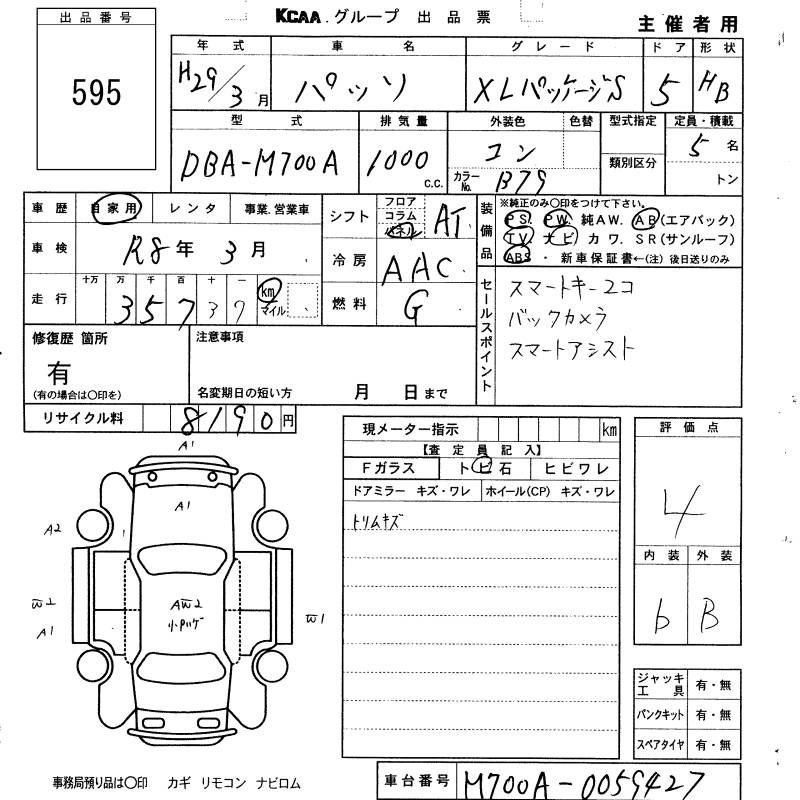 出品番号
595
KCAA.グループ 出品票
主催者用
年式 車名 グレード ドア 形状
H29/3月 パッソ XLパッケージS 5 HB
型式 排気量 外装色 色替 型式指定 定員・積載
DBA-M700A 1000 c.c. コン 5名
カラーNo. B79 類別区分 トン
車歴 自家用 レンタ 事業.営業車
車検 R8年 3月
走行 十万 万 千 百 十 一
35737 km マイル
シフト フロア コラム パネル AT
冷房 AAC
燃料 G
装備品
※純正のみ〇印をつけて下さい。
PS. PW. 純AW. AB(エアバック)
TV. ナビ カワ. SR(サンルーフ)
ABS ・ 新車保証書←(注) 後日送りのみ
セールスポイント
スマートキー2コ
バックカメラ
スマートアシスト
修復歴 箇所
有
(有の場合は〇印を)
注意事項
名変期日の短い方 月 日まで
リサイクル料 8190円
A1
A1
A2
AW2
小凹ハゲ
W2
A1
W1
現メーター指示 km
【査定員記入】
Fガラス トビ石 ヒビワレ
ドアミラー キズ・ワレ ホイール(CP) キズ・ワレ
トリムキズ
評価点
4
内装 外装
b B
ジャッキ工具 有・無
パンクキット 有・無
スペアタイヤ 有・無
事務局預り品は〇印 カギ リモコン ナビロム
車台番号 M700A-0059427